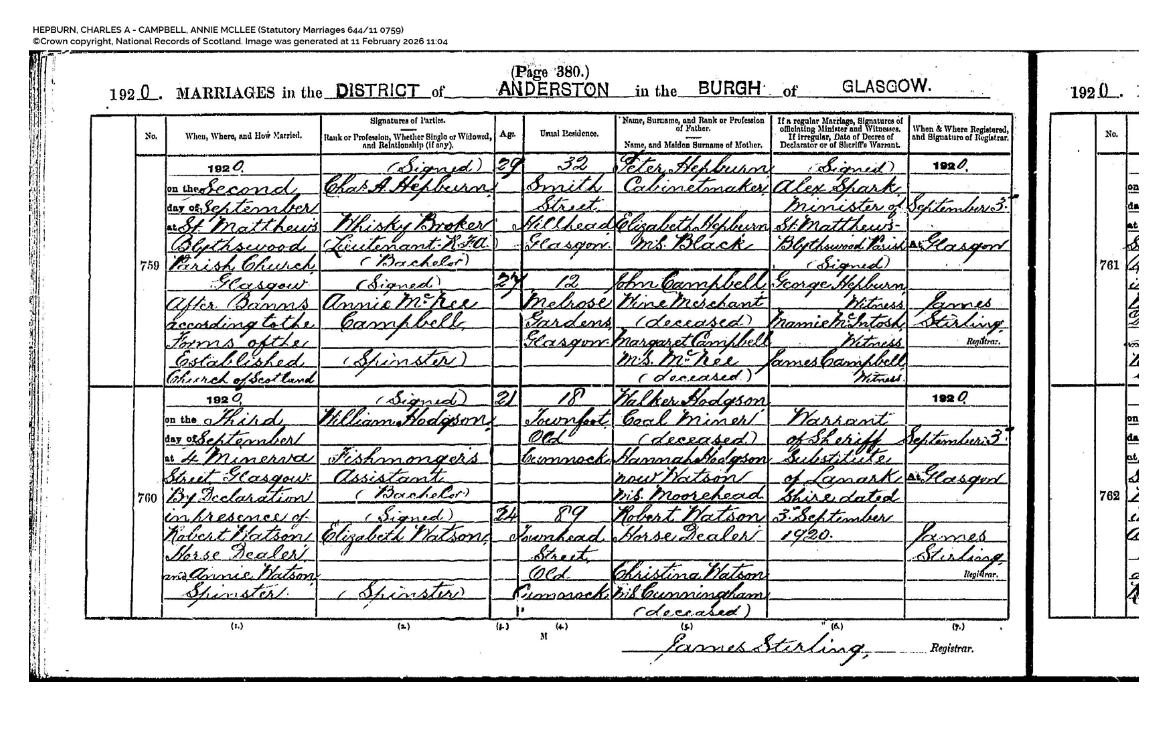 HEPBURN, CHARLES A - CAMPBELL, ANNIE MCLLEE (Statutory Marriages 644/11 0759)
©Crown copyright, National Records of Scotland. Image was generated at 11 February 2026 11:04
(Page 380.)
1920. MARRIAGES in the DISTRICT of ANDERSTON in the BURGH of GLASGOW.
1920.
No.
When, Where, and How Married.
Signatures of Parties.
Rank or Profession, Whether Single or Widowed, and Relationship (if any).
Age.
Usual Residence.
Name, Surname, and Rank or Profession of Father.
Name, and Maiden Surname of Mother.
If a regular Marriage, Signatures of officiating Minister and Witnesses.
If irregular, Date of Decree of Declarator or of Sheriff's Warrant.
When & Where Registered, and Signature of Registrar.
No.
759
1920.
on the Second
day of September
at St. Matthew's
Blythswood
Parish Church
Glasgow
After Banns
according to the
Forms of the
Established
Church of Scotland
(Signed)
Chas. A. Hepburn
Whisky Broker
(Lieutenant R.F.A.
(Bachelor)
(Signed)
Annie McKee
Campbell
(Spinster)
29
27
32
Smith
Street
Hillhead
Glasgow
12
Melrose
Gardens
Glasgow
Peter Hepburn
Cabinetmaker
Elizabeth Hepburn
M.S. Black
John Campbell
Wine Merchant
(deceased)
Margaret Campbell
M.S. McKee
(deceased)
(Signed)
Alex Spark
Minister of
St. Matthews-
Blythswood Parish
(Signed)
George Hepburn
Witness
Mamie McIntosh
Witness
James Campbell
Witness.
1920.
September 3rd
at Glasgow
James
Stirling
Registrar.
761
760
1920.
on the Third
day of September
at 4 Minerva
Street Glasgow
By Declaration
in presence of
Robert Watson
Horse Dealer
and Annie Watson
Spinster
(Signed)
William Hodgson
Fishmonger's
Assistant
(Bachelor)
(Signed)
Elizabeth Watson
(Spinster)
21
24
18
Townfoot
Old
Cumnock
89
Townhead
Street
Old
Cumnock
Walker Hodgson
Coal Miner
(deceased)
Hannah Hodgson
now Watson
M.S. Moorehead
Robert Watson
Horse Dealer
Christina Watson
M.S. Cunningham
(deceased)
Warrant
of Sheriff
Substitute
of Lanark
Shire dated
3rd September
1920.
1920.
September 3rd
at Glasgow
James
Stirling
Registrar.
762
(1.) (2.) (3.) (4.) (5.) (6.) (7.)
M
James Stirling, Registrar.